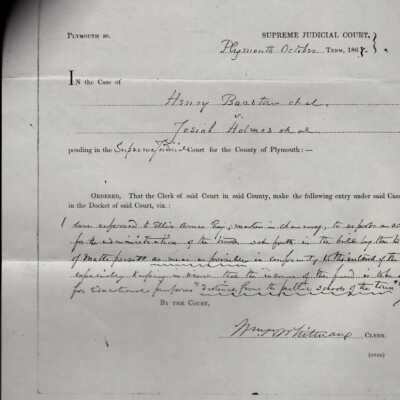 PLYMOUTH SS.
SUPREME JUDICIAL COURT,
Plymouth October TERM, 186
IN the Case of
Henry Barstow et al.
v.
Josiah Holmes et al
pending in the Supreme Judicial Court for the County of Plymouth:—
ORDERED, That the Clerk of said Court in said County, make the following entry under said Case
in the Docket of said Court, viz:
Case referred to Ellis Ames Esq; master in chancery, to report
for the administration of the trust set forth in the bill by the
of Mattapoisett as near as possible in conformity to the
especially keeping in view that the income of the fund is to be
for educational purposes "distinct from the public schools of the town"
BY THE COURT,
Wm H Whitman, CLERK.
(OVER)